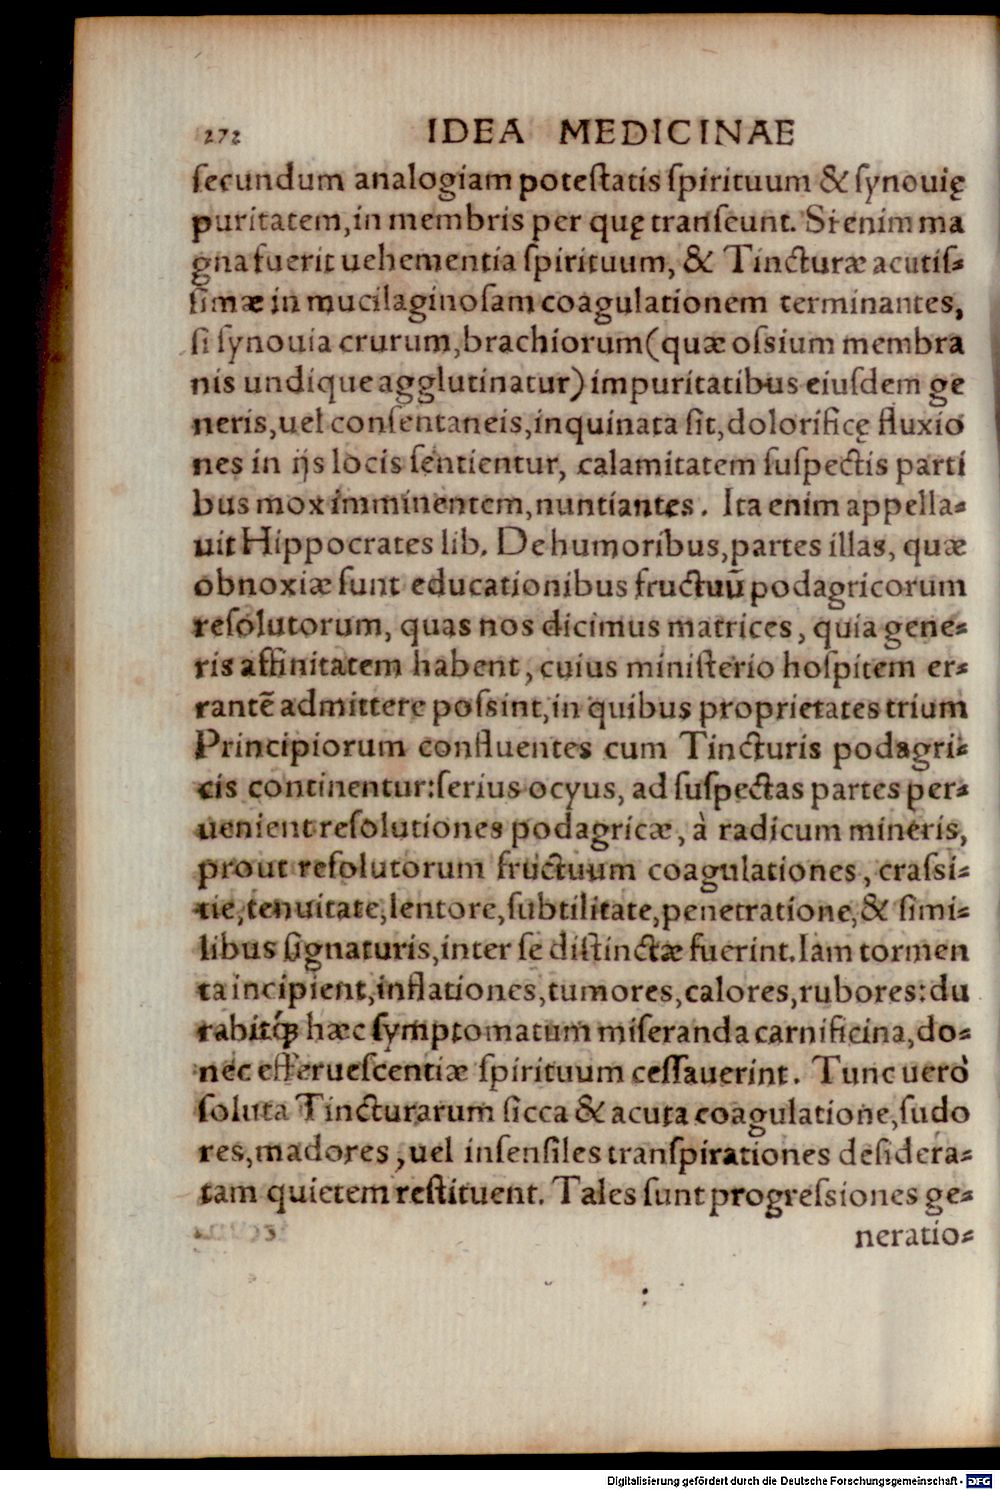 272 IDEA MEDICINAE
ſecundum analogiam poteſtatis ſpirituum & ſynouię
puritatem, in membris per quę tranſeunt. Si enim ma
gna fuerit uehementia ſpirituum, & Tincturæ acutiſ-
ſimæ in mucilaginoſam coagulationem terminantes,
ſi ſynouia crurum, brachiorum (quæ oſsium membra
nis undique agglutinatur) impuritatibus eiuſdem ge
neris, uel conſentaneis, inquinata ſit, dolorificę fluxio
nes in ijs locis ſentientur, calamitatem ſuſpectis parti
bus mox imminentem, nuntiantes. Ita enim appella-
uit Hippocrates lib. De humoribus, partes illas, quæ
obnoxiæ ſunt educationibus fructuū podagricorum
reſolutorum, quas nos dicimus matrices, quia gene-
ris affinitatem habent, cuius miniſterio hoſpitem er-
rantē admittere poſsint, in quibus proprietates trium
Principiorum confluentes cum Tincturis podagri-
cis continentur: ſerius ocyus, ad ſuſpectas partes per-
uenient reſolutiones podagricæ, à radicum mineris,
prout reſolutorum fructuum coagulationes, craſsi-
tie, tenuitate, lentore, ſubtilitate, penetratione, & ſimi-
libus ſignaturis, inter ſe diſtinctæ fuerint. Iam tormen
ta incipient, inflationes, tumores, calores, rubores: du
rabitq́; hæc ſymptomatum miſeranda carnificina, do-
nec efferueſcentiæ ſpirituum ceſſauerint. Tunc uerò
ſoluta Tincturarum ſicca & acuta coagulatione, ſudo
res, madores, uel inſenſiles tranſpirationes deſidera-
tam quietem reſtituent. Tales ſunt progreſsiones ge-
neratio-
Digitalisierung gefördert durch die Deutsche Forschungsgemeinschaft - DFG